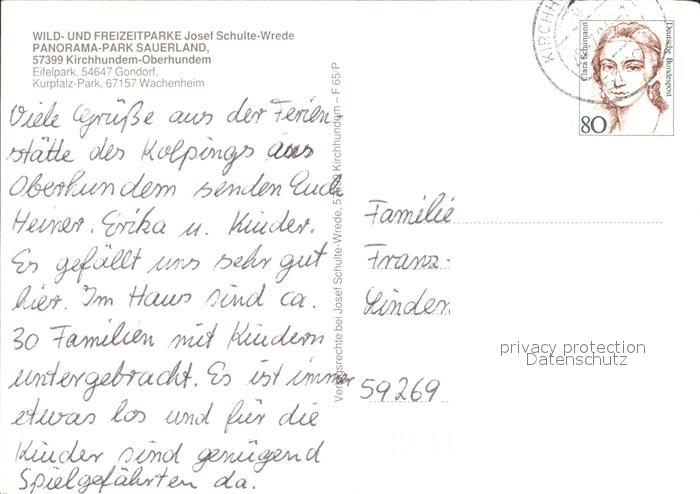 WILD- UND FREIZEITPARKE Josef Schulte-Wrede
PANORAMA-PARK SAUERLAND,
57399 Kirchhundem-Oberhundem
Eifelpark, 54647 Gondorf,
Kurpfalz-Park, 67157 Wachenheim
Viele Grüße aus der Ferien-
stätte des Kolpings aus
Oberhundem senden Euch
Heiner, Erika u. Kinder.
Es gefällt uns sehr gut
hier. Im Haus sind ca.
30 Familien mit Kindern
untergebracht. Es ist immer
etwas los und für die
Kinder sind genügend
Spielgefährten da.
Verlagsrechte bei Josef Schulte-Wrede, 57399 Kirchhundem – F 65/P
KIRCHH
Clara Schumann
Deutsche Bundespost
80
Familie
Franz
Linder
59269
privacy protection
Datenschutz